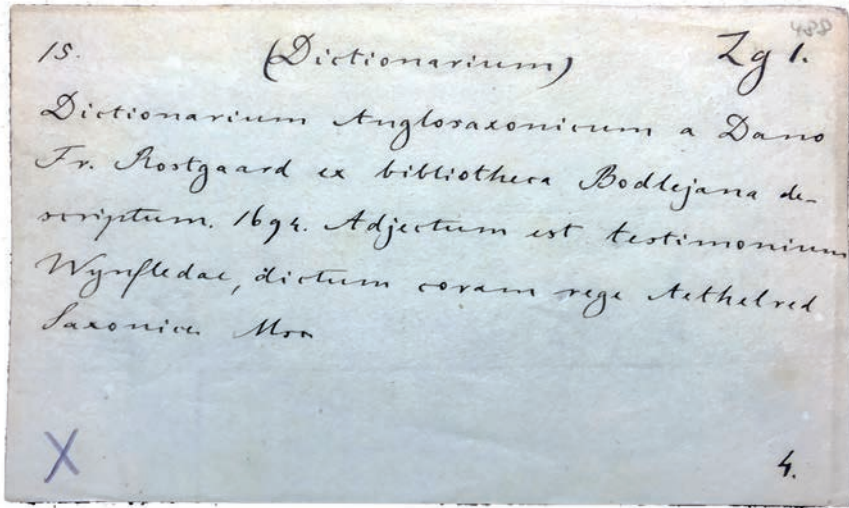 488
15. (Dictionarium) Zg 1.
Dictionarium Anglosaxonicum a Dano
Fr. Rostgaard ex bibliotheca Bodlejana de-
scriptum. 1694. Adjectum est testimonium
Wynfledae, dictum coram rege Aethelred
Saxonice.
X 4.